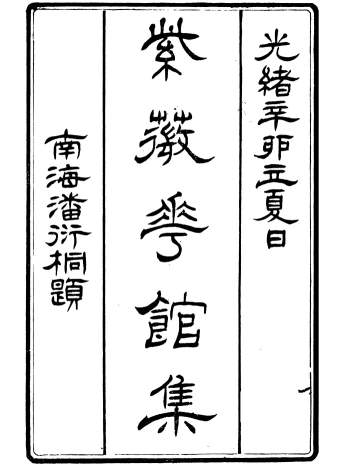 光緒辛卯立夏日
紫薇華館集
南海潘衍桐題